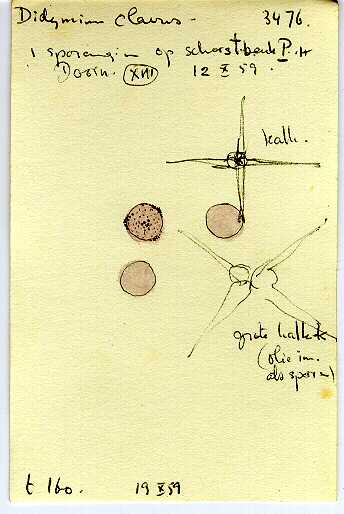 Didymium clavus - 3476.
1 sporangium op schors t. bank P. H
Doorn. XIII 12 X 59.
kalk.
grote kalkk
(olie im.
als sporen)
t 160. 19 X 59